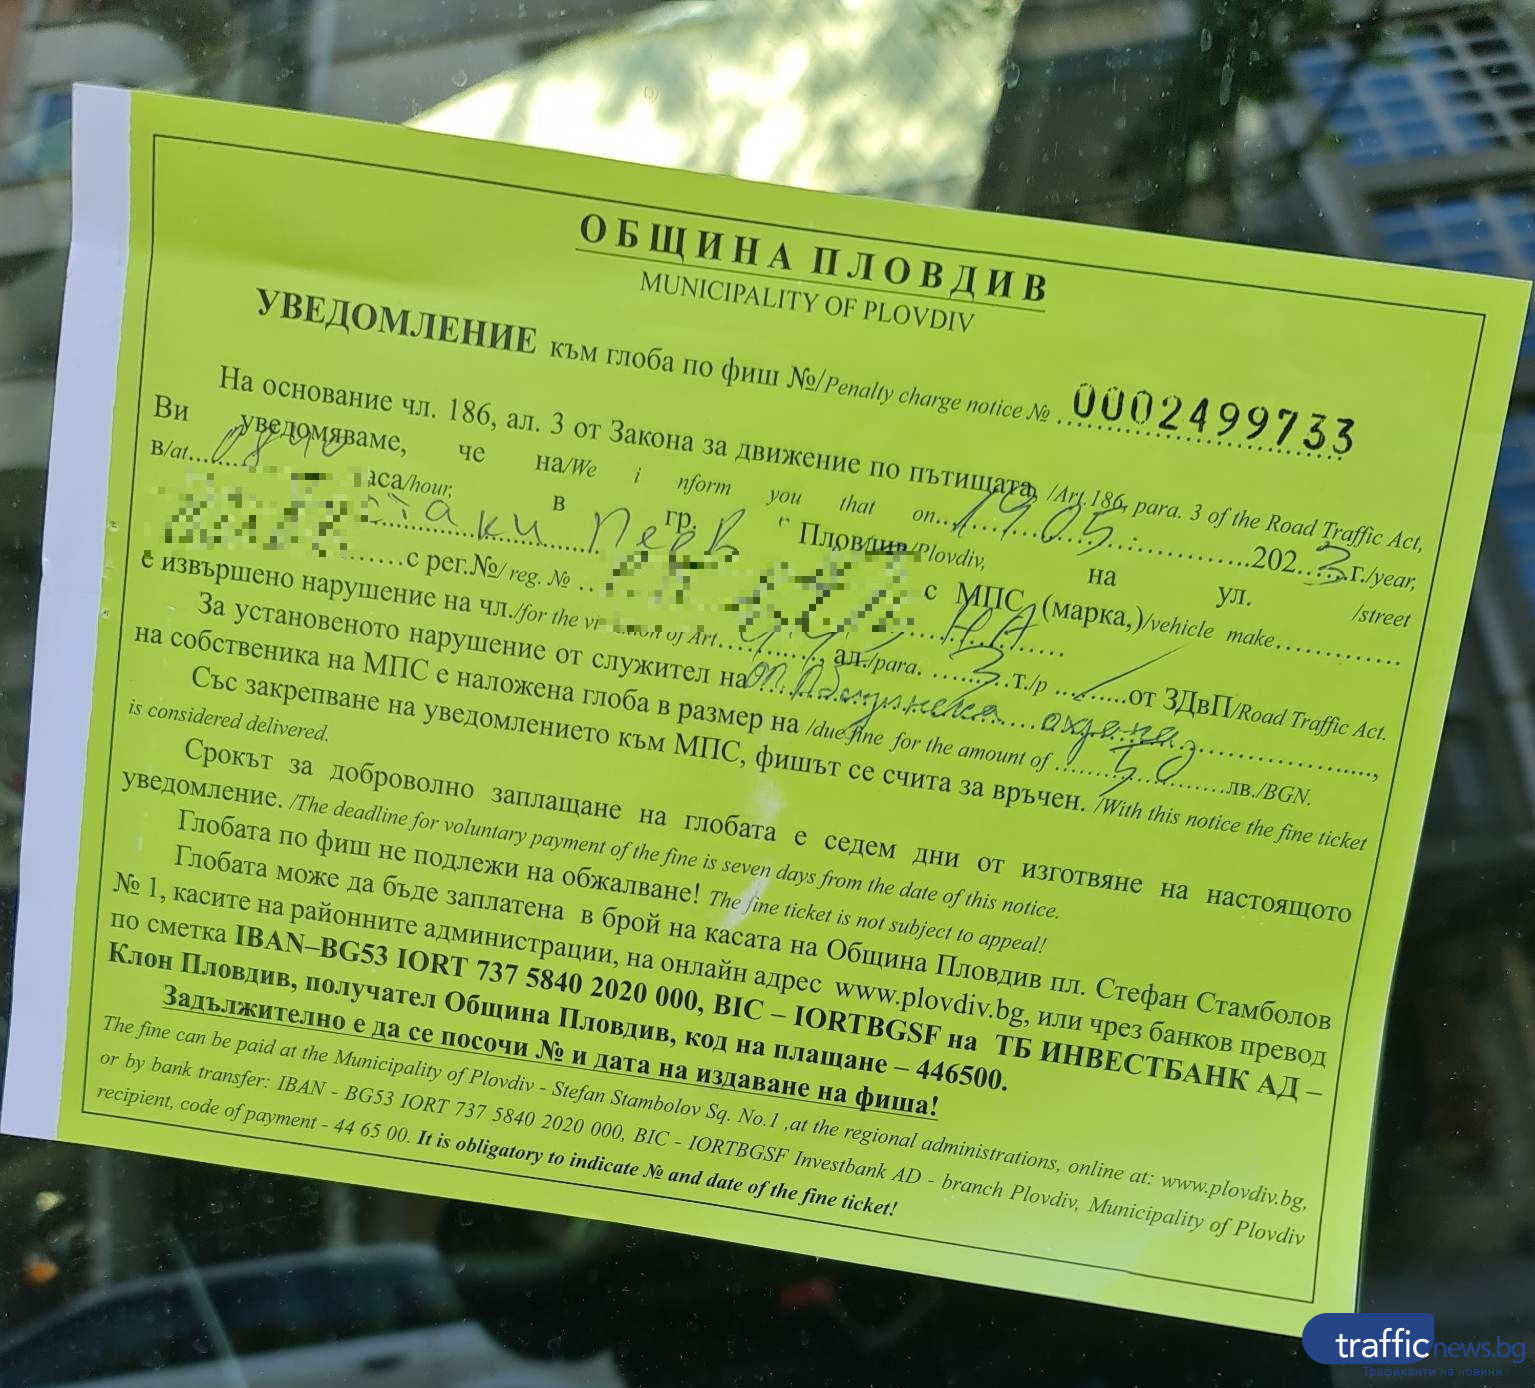 ОБЩИНА ПЛОВДИВ
MUNICIPALITY OF PLOVDIV
УВЕДОМЛЕНИЕ към глоба по фиш №/Penalty charge notice № 0002499733
На основание чл. 186, ал. 3 от Закона за движение по пътищата, /Art.186, para. 3 of the Road Traffic Act,
Ви уведомяваме, че на/We i nform you that on 19.05 2023 г./year,
в/at 0840 часа/hour, в гр. Пловдив/Plovdiv, на ул. /street
с МПС (марка,)/vehicle make
с рег.№/ reg. №
е извършено нарушение на чл./for the violation of Art. ал./para. 3 т./p от ЗДвП/Road Traffic Act.
За установеното нарушение от служител на ОП Общинска охрана,
на собственика на МПС е наложена глоба в размер на /due fine for the amount of 50 лв./BGN.
Със закрепване на уведомлението към МПС, фишът се счита за връчен. /With this notice the fine ticket
is considered delivered.
Срокът за доброволно заплащане на глобата е седем дни от изготвяне на настоящото
уведомление. /The deadline for voluntary payment of the fine is seven days from the date of this notice.
Глобата по фиш не подлежи на обжалване! The fine ticket is not subject to appeal!
Глобата може да бъде заплатена в брой на касата на Община Пловдив пл. Стефан Стамболов
№ 1, касите на районните администрации, на онлайн адрес www.plovdiv.bg, или чрез банков превод
по сметка IBAN–BG53 IORT 737 5840 2020 000, BIC – IORTBGSF на ТБ ИНВЕСТБАНК АД –
Клон Пловдив, получател Община Пловдив, код на плащане – 446500.
Задължително е да се посочи № и дата на издаване на фиша!
The fine can be paid at the Municipality of Plovdiv - Stefan Stambolov Sq. No.1 ,at the regional administrations, online at: www.plovdiv.bg,
or by bank transfer: IBAN - BG53 IORT 737 5840 2020 000, BIC - IORTBGSF Investbank AD - branch Plovdiv, Municipality of Plovdiv
recipient, code of payment - 44 65 00. It is obligatory to indicate № and date of the fine ticket!
trafficnews.bg
Трафиканти на новини